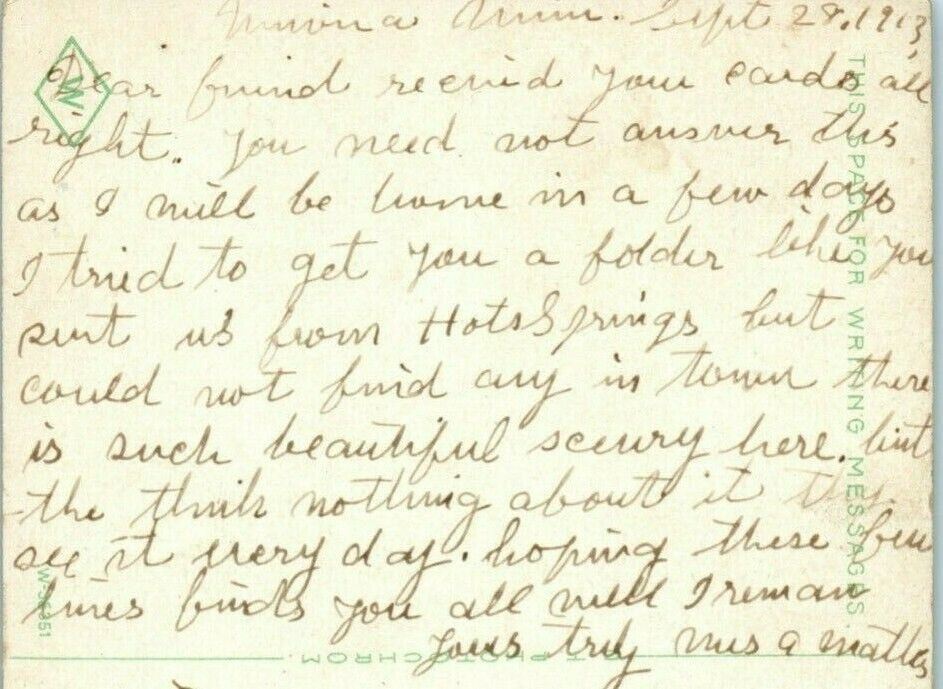 Minn. Sept 28. 1913,
Dear friend recevid your cards all
right.. you need not answer this
as I will be home in a few days
I tried to get you a folder like you
sent us from Hots Springs but
could not find any in town there
is such beautiful scenry here. but
the think nothing about it they
see it every day. hoping these few
lines finds you all well I reman
Yours truly mrs a
THIS SPACE FOR WRITING MESSAGES.
W